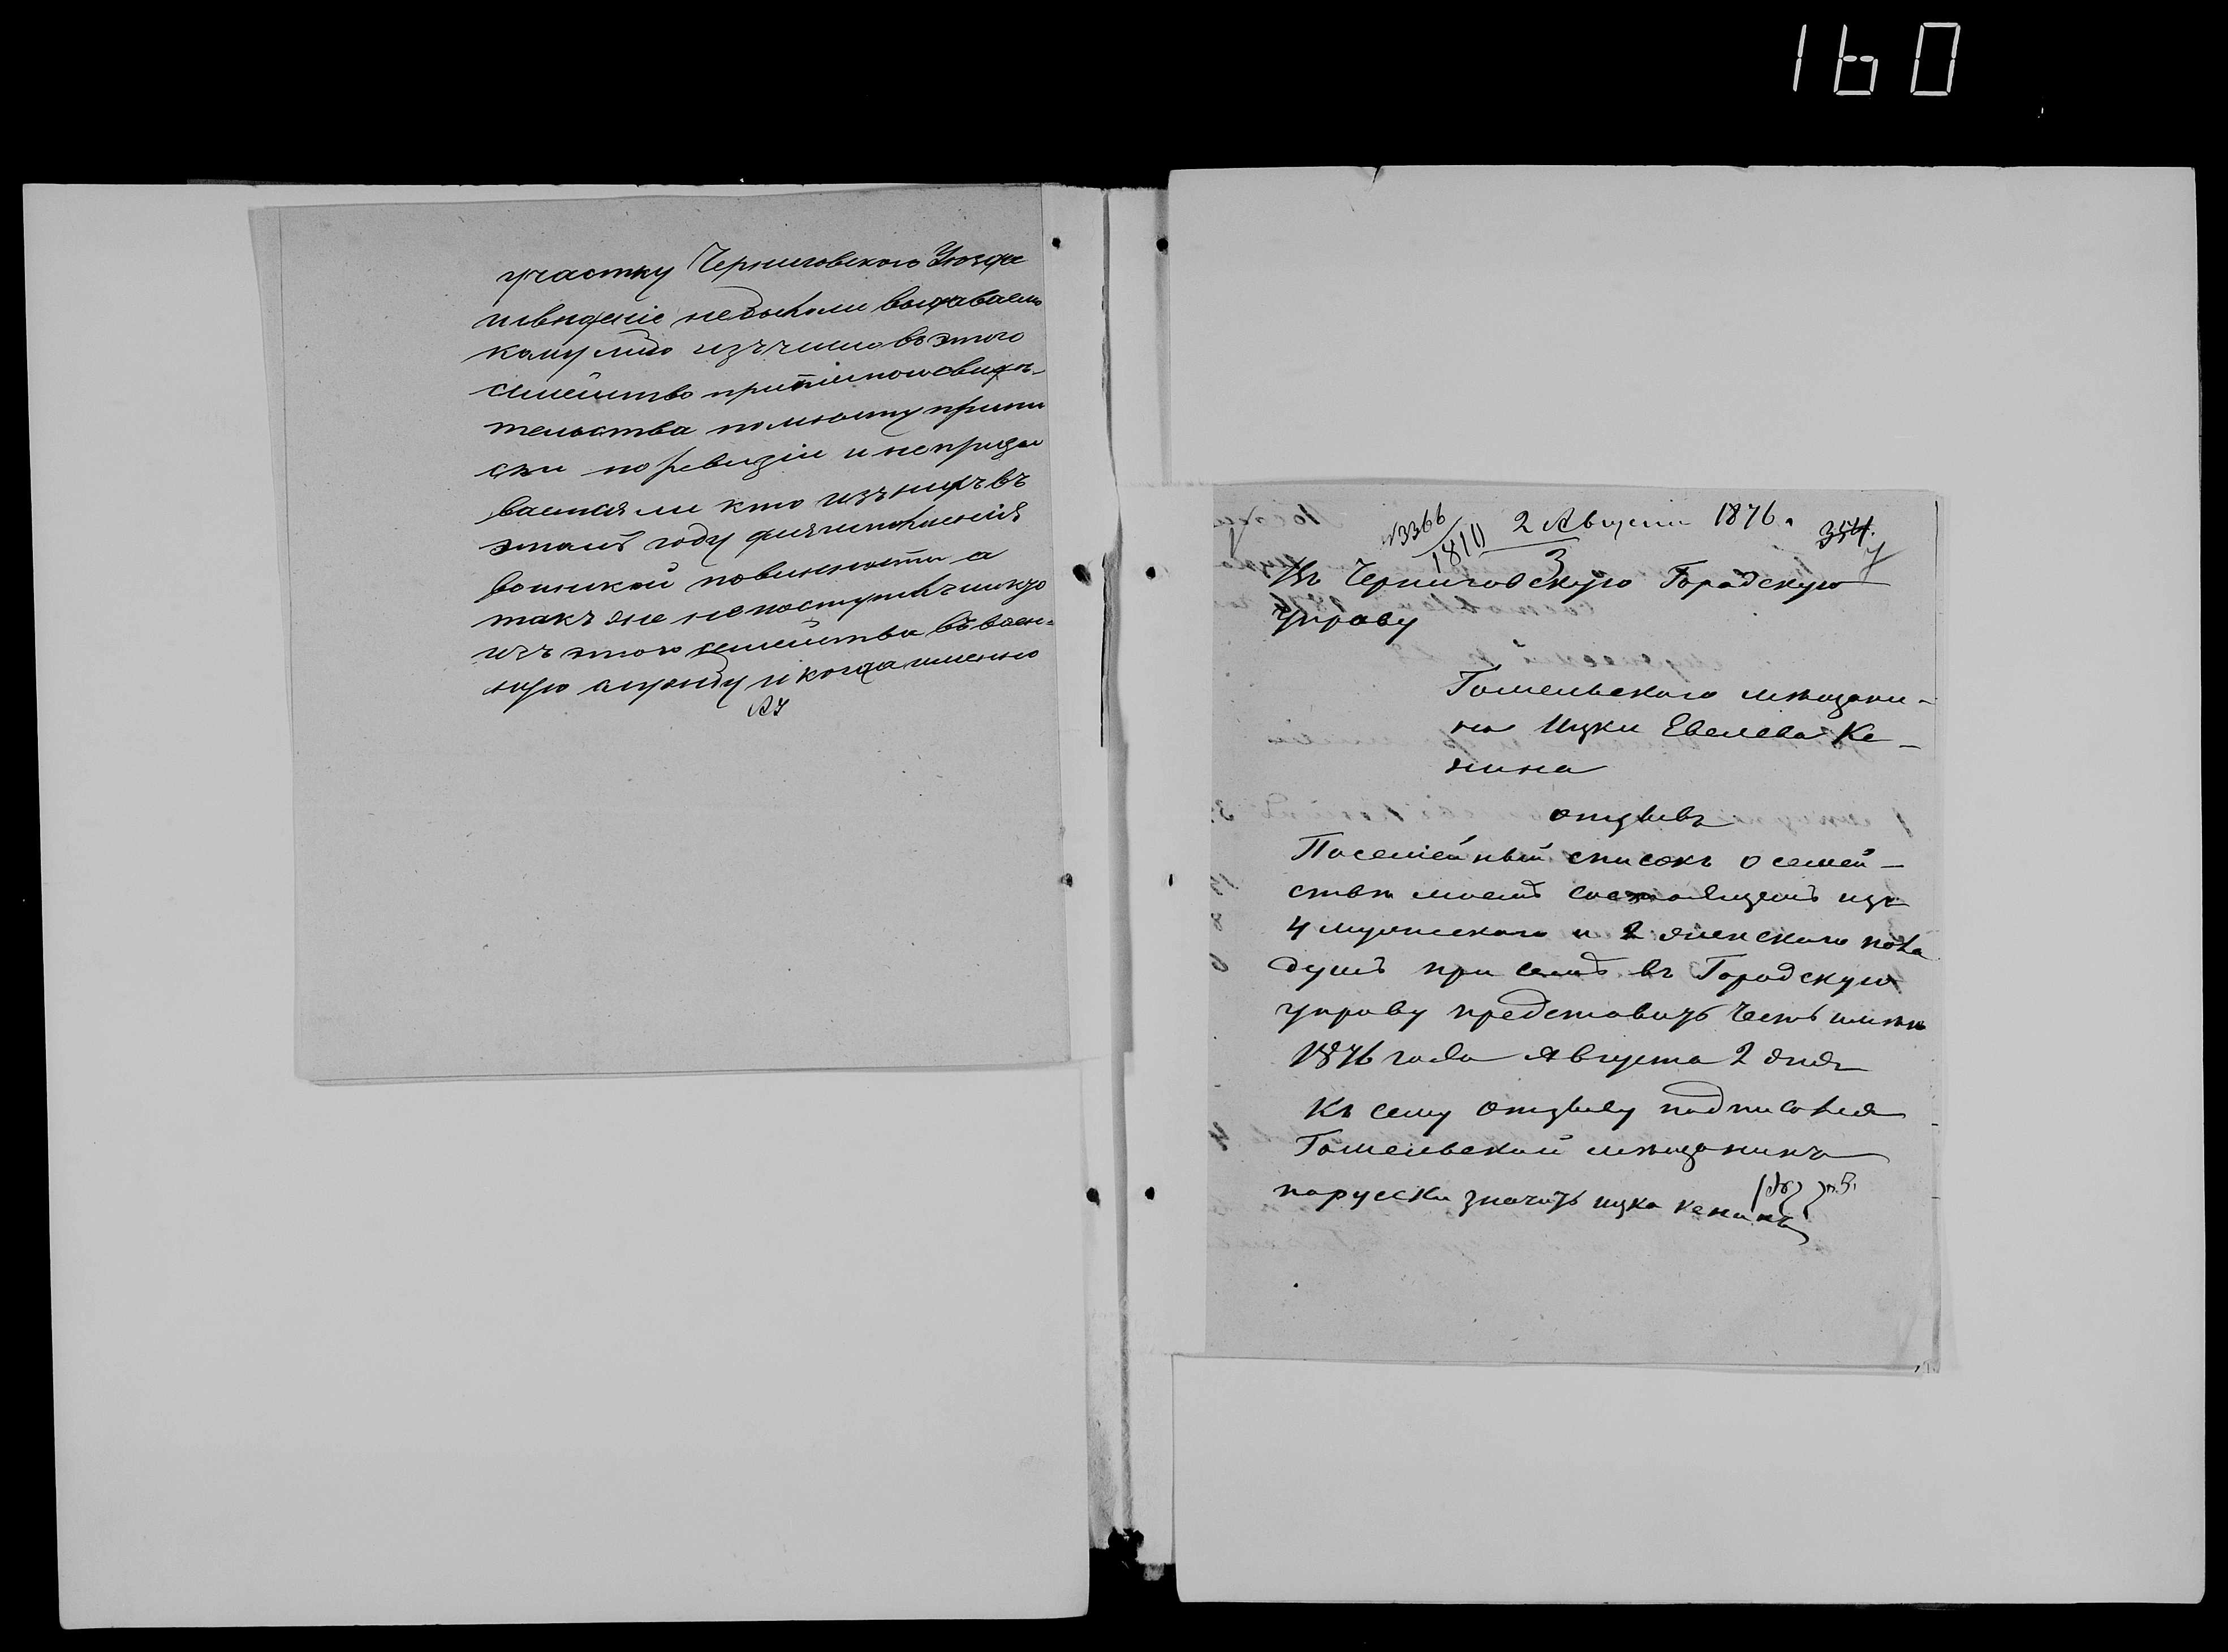 160
участку Черниговскаго Уѣзда
и свѣдѣніе небыло ли выдаваемо
кому либо изъ членовъ этого
семейства приписнаго свидѣ-
тельства по мѣсту припи
ски по ревизіи и непризы
вался ли кто изъ нихъ въ
этомъ году для исполненія
воинской повинности а
такъ же не поступилъ ли кто
изъ этого семейства въ воен-
ную службу и когда именно
№ 3366
1810
2 Августа 1876.
354.
7
3
Въ Черниговскую Городскую
Управу
Гомельскаго мѣщани-
на Ицки Евелева Ке-
нина
отзывъ
Посемейный списокъ о семей-
ствѣ моемъ состоящемъ изъ
4 мужескаго и 2 женскаго пола
душъ при семъ въ Городскую
управу представить честь имѣю
1876 года Августа 2 дня
Къ сему отзыву подписался
Гомельскій мѣщанинъ
порусски значитъ ицка кенинъ